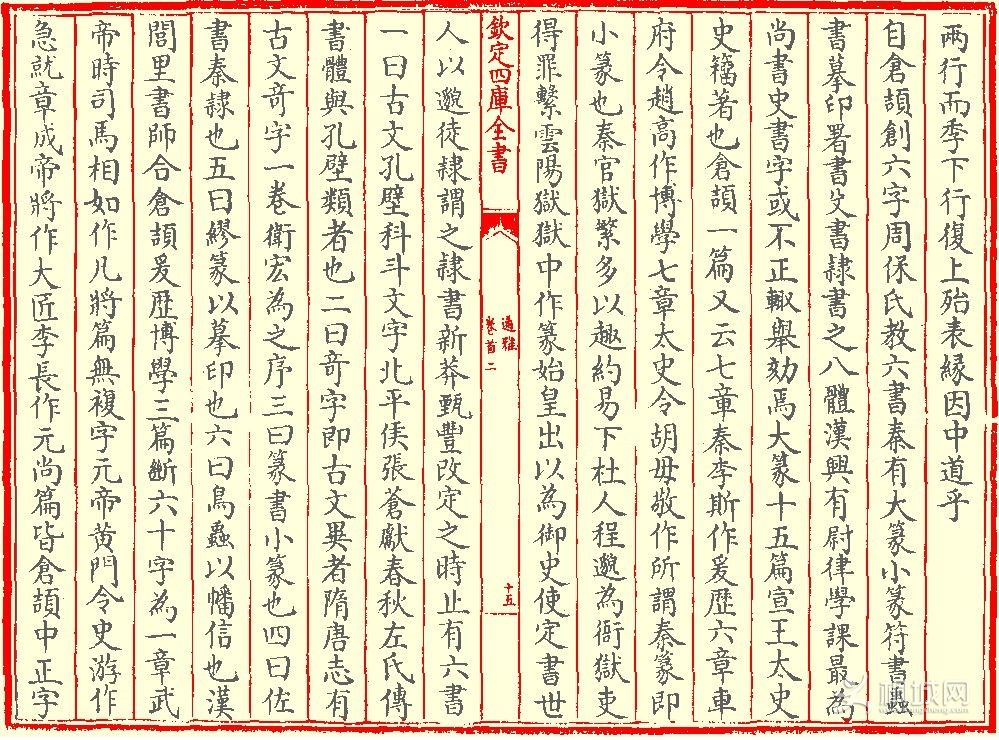 兩行而季下行復上殆表縁因中道乎
自倉頡創六字周保氏教六書秦有大篆小篆符書蟲
書摹印署書殳書隸書之八體漢興有尉律學課最為
尚書史書字或不正輙舉劾焉大篆十五篇宣王太史
史籀著也倉頡一篇又云七章秦李斯作爰歴六章車
府令趙高作博學七章太史令胡毋敬作所謂秦篆即
小篆也秦官獄繁多以趣約易下杜人程邈為衙獄吏
得罪繫雲陽獄獄中作篆始皇出以為御史使定書世
欽定四庫全書
通雅
卷首二
十五
人以邈徒隸謂之隸書新莽甄豐改定之時止有六書
一曰古文孔壁科斗文字北平侯張蒼獻春秋左氏傳
書體與孔壁類者也二曰奇字即古文異者隋唐志有
古文奇字一卷衛宏為之序三曰篆書小篆也四曰佐
書秦隸也五曰繆篆以摹印也六曰鳥蟲以幡信也漢
閭里書師合倉頡爰歴博學三篇斷六十字為一章武
帝時司馬相如作凡將篇無複字元帝黄門令史游作
急就章成帝將作大匠李長作元尚篇皆倉頡中正字